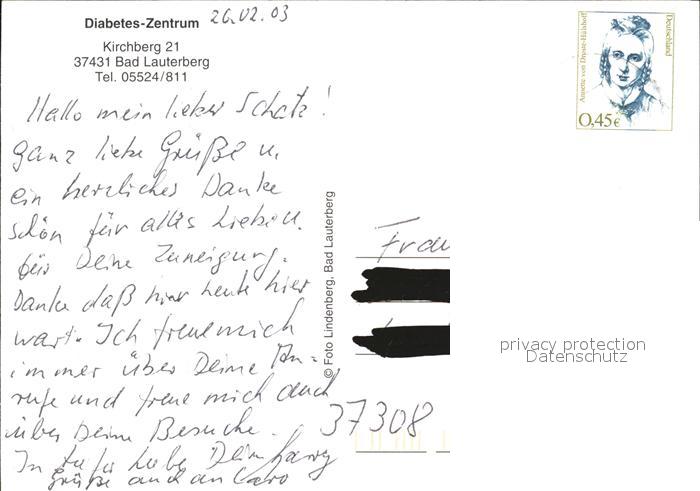 Diabetes-Zentrum
26.02.03
Kirchberg 21
37431 Bad Lauterberg
Tel. 05524/811
Annette von Droste-Hülshoff
Deutschland
0,45€
Hallo mein lieber Schatz!
Ganz liebe Grüße u.
ein herzliches Danke
schön für alles Liebe u.
für Deine Zuneigung.
Danke daß hier heute hier
warst. Ich freue mich
immer über Deine An-
rufe und freue mich auch
über Deine Besuche.
In tiefer Liebe Dein Harry
Grüße auch an Caro
© Foto Lindenberg, Bad Lauterberg
Frau
37308
privacy protection
Datenschutz